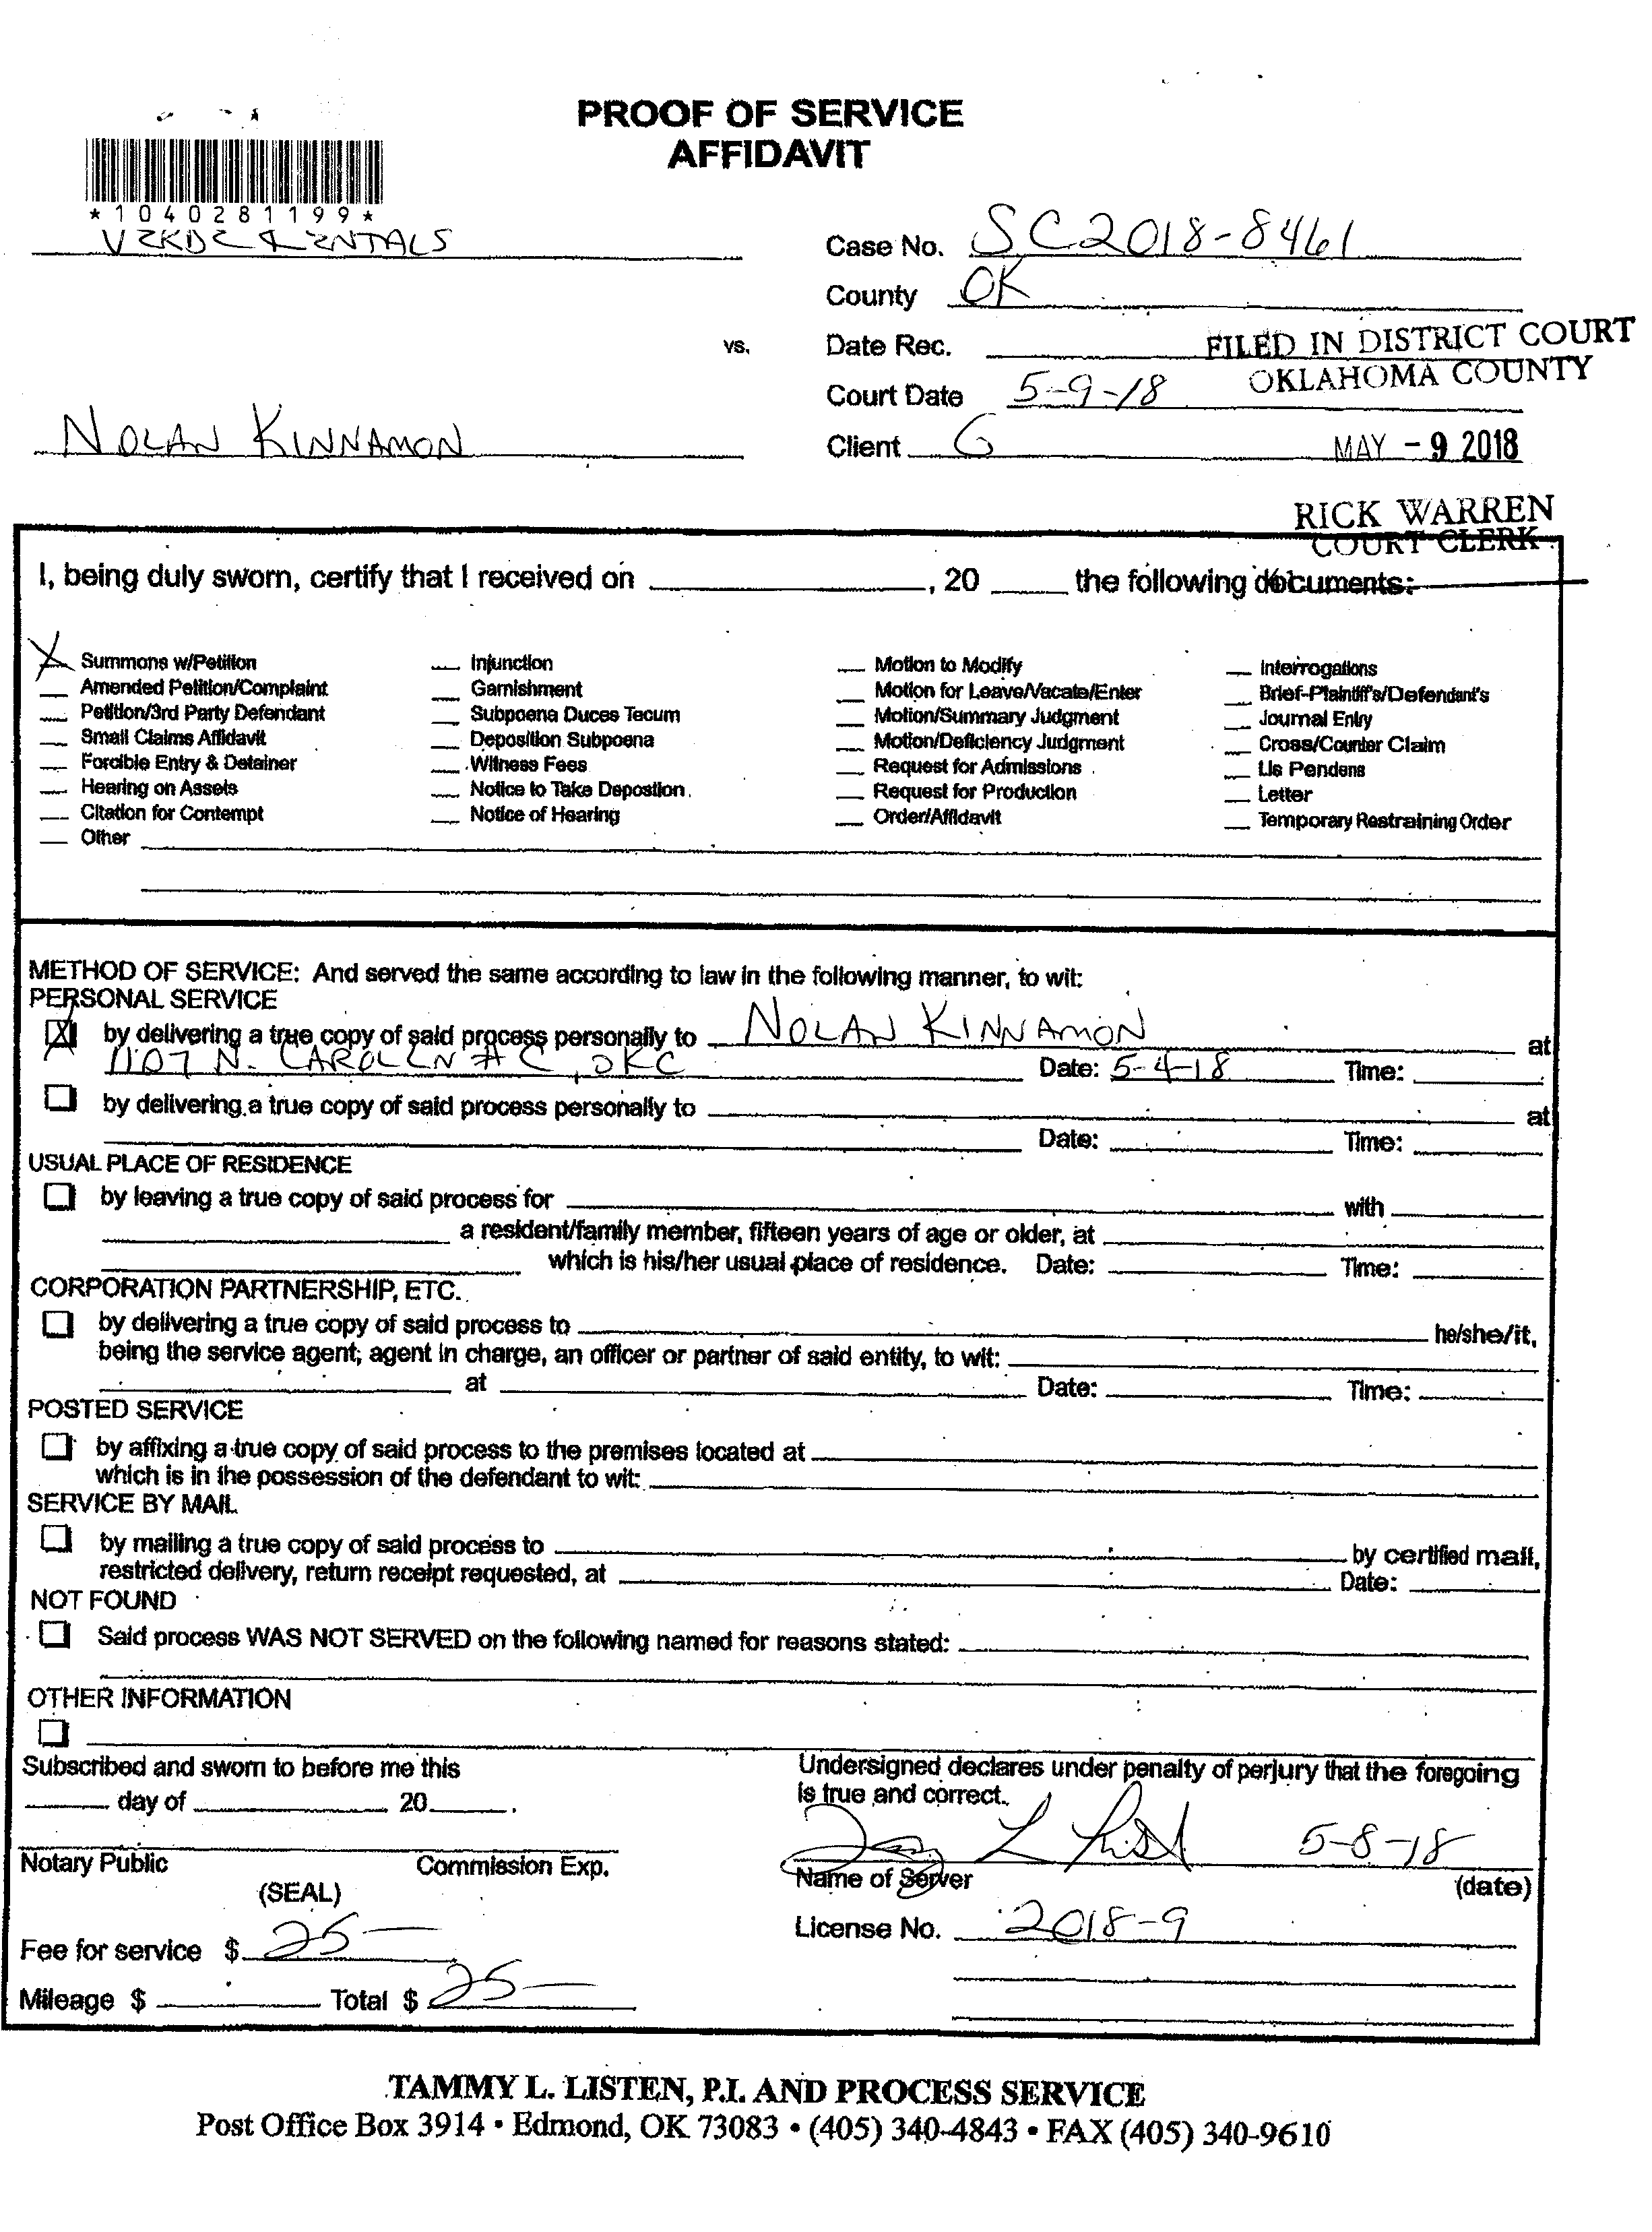 PROOF OF SERVICE
AFFIDAVIT
*1040281199*
VERDE RENTALS
Case No. SC2018-8461
County OK
vs.
Date Rec.
FILED IN DISTRICT COURT
OKLAHOMA COUNTY
Court Date 5-9-18
NOLAN KINNAMON
Client G
MAY - 9 2018
RICK WARREN
COURT CLERK
I, being duly sworn, certify that I received on ____, 20 ____ the following documents:
X Summons w/Petition
Amended Petition/Complaint
Petition/3rd Party Defendant
Small Claims Affidavit
Forcible Entry & Detainer
Hearing on Assets
Citation for Contempt
Other
Injunction
Garnishment
Subpoena Duces Tecum
Deposition Subpoena
Witness Fees
Notice to Take Depostion
Notice of Hearing
Motion to Modify
Motion for Leave/Vacate/Enter
Motion/Summary Judgment
Motion/Deficiency Judgment
Request for Admissions
Request for Production
Order/Affidavit
Interrogations
Brief-Plaintiff's/Defendant's
Journal Entry
Cross/Counter Claim
Lis Pendens
Letter
Temporary Restraining Order
METHOD OF SERVICE: And served the same according to law in the following manner, to wit:
PERSONAL SERVICE
X by delivering a true copy of said process personally to NOLAN KINNAMON at
1107 N. #C, OKC Date: 5-4-18 Time:
by delivering a true copy of said process personally to ____ at
Date: ____ Time:
USUAL PLACE OF RESIDENCE
by leaving a true copy of said process for ____ with
a resident/family member, fifteen years of age or older, at
which is his/her usual place of residence. Date: ____ Time:
CORPORATION PARTNERSHIP, ETC.
by delivering a true copy of said process to ____ he/she/it,
being the service agent; agent in charge, an officer or partner of said entity, to wit:
at ____ Date: ____ Time:
POSTED SERVICE
by affixing a true copy of said process to the premises located at
which is in the possession of the defendant to wit:
SERVICE BY MAIL
by mailing a true copy of said process to ____ by certified mail,
restricted delivery, return receipt requested, at ____ Date:
NOT FOUND
Said process WAS NOT SERVED on the following named for reasons stated:
OTHER INFORMATION
Subscribed and sworn to before me this
____ day of ____ 20____.
Notary Public Commission Exp.
(SEAL)
Fee for service $ 25-
Mileage $ ____ Total $ 25-
Undersigned declares under penalty of perjury that the foregoing
is true and correct.
5-8-18
Name of Server (date)
License No. 2018-9
TAMMY L. LISTEN, P.I. AND PROCESS SERVICE
Post Office Box 3914 • Edmond, OK 73083 • (405) 340-4843 • FAX (405) 340-9610